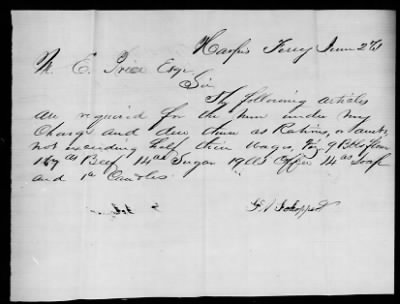 Harpers Ferry June 2 61
W. E. Price Esqr
Sir
The following articles
are required for the men under my
Charge and due them as Rations, or
not exceeding half their wages, Viz 9 Bbls flour
167 lbs Beef 14 lbs Sugar 19 lbs Coffee 14 lbs Soap
and 1 lb Candles